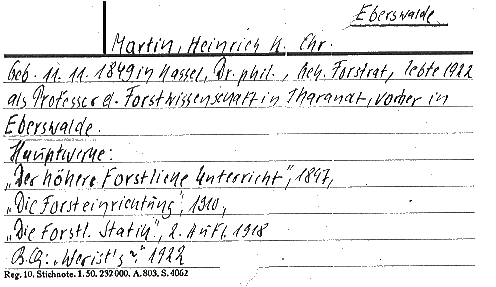 Eberswalde
Martin, Heinrich K. Chr.
Geb. 11. 11. 1849 in Kassel, Dr. phil., Geh. Forstrat, lebte 1922
als Professor d. Forstwissenschaft in Tharandt, vorher in
Eberswalde.
Hauptwerke:
„Der höhere Forstliche Unterricht", 1897,
„Die Forsteinrichtung", 1910,
„Die Forstl. Statik", 2. Aufl. 1918
B.Q: „Wer ist's?" 1922
Reg. 10. Stichnote. 1. 50. 232000. A. 803. S. 4062